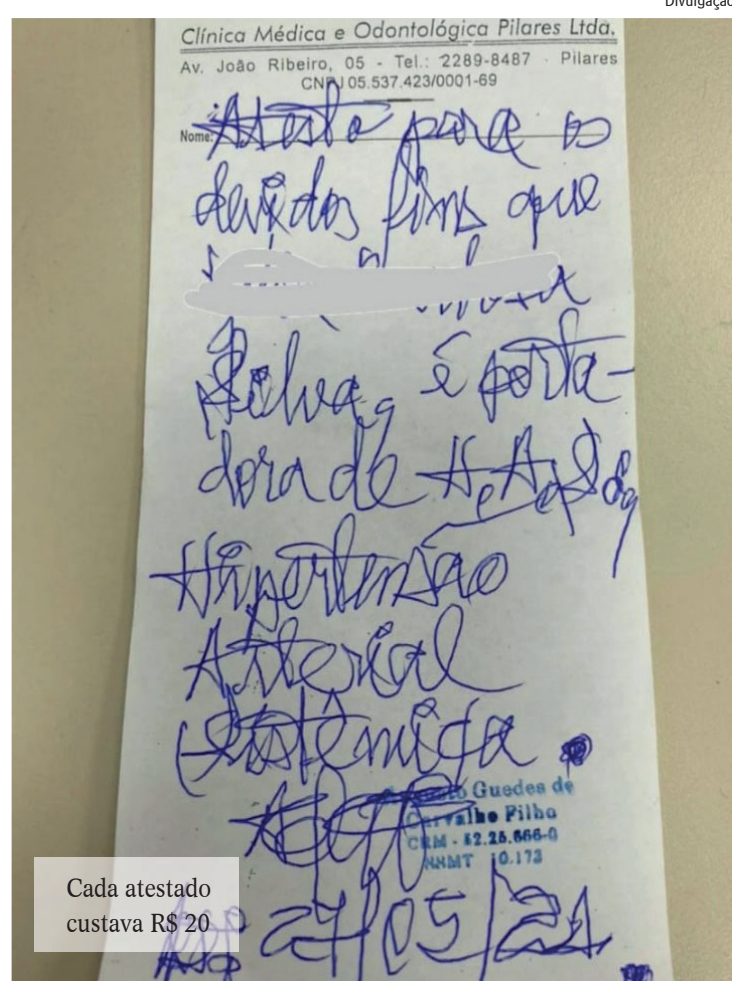 Divulgação
Clínica Médica e Odontológica Pilares Ltda.
Av. João Ribeiro, 05 - Tel.: 2289-8487 · Pilares
CNPJ 05.537.423/0001-69
Nome: Atesto para os
devidos fins que
Silva, é porta-
dora de H.A.S.,
Hipertensão
Arterial
Sistêmica.
Guedes de
Carvalho Filho
CRM - 52.25.666-0
10.173
27/05/21
Cada atestado
custava R$ 20